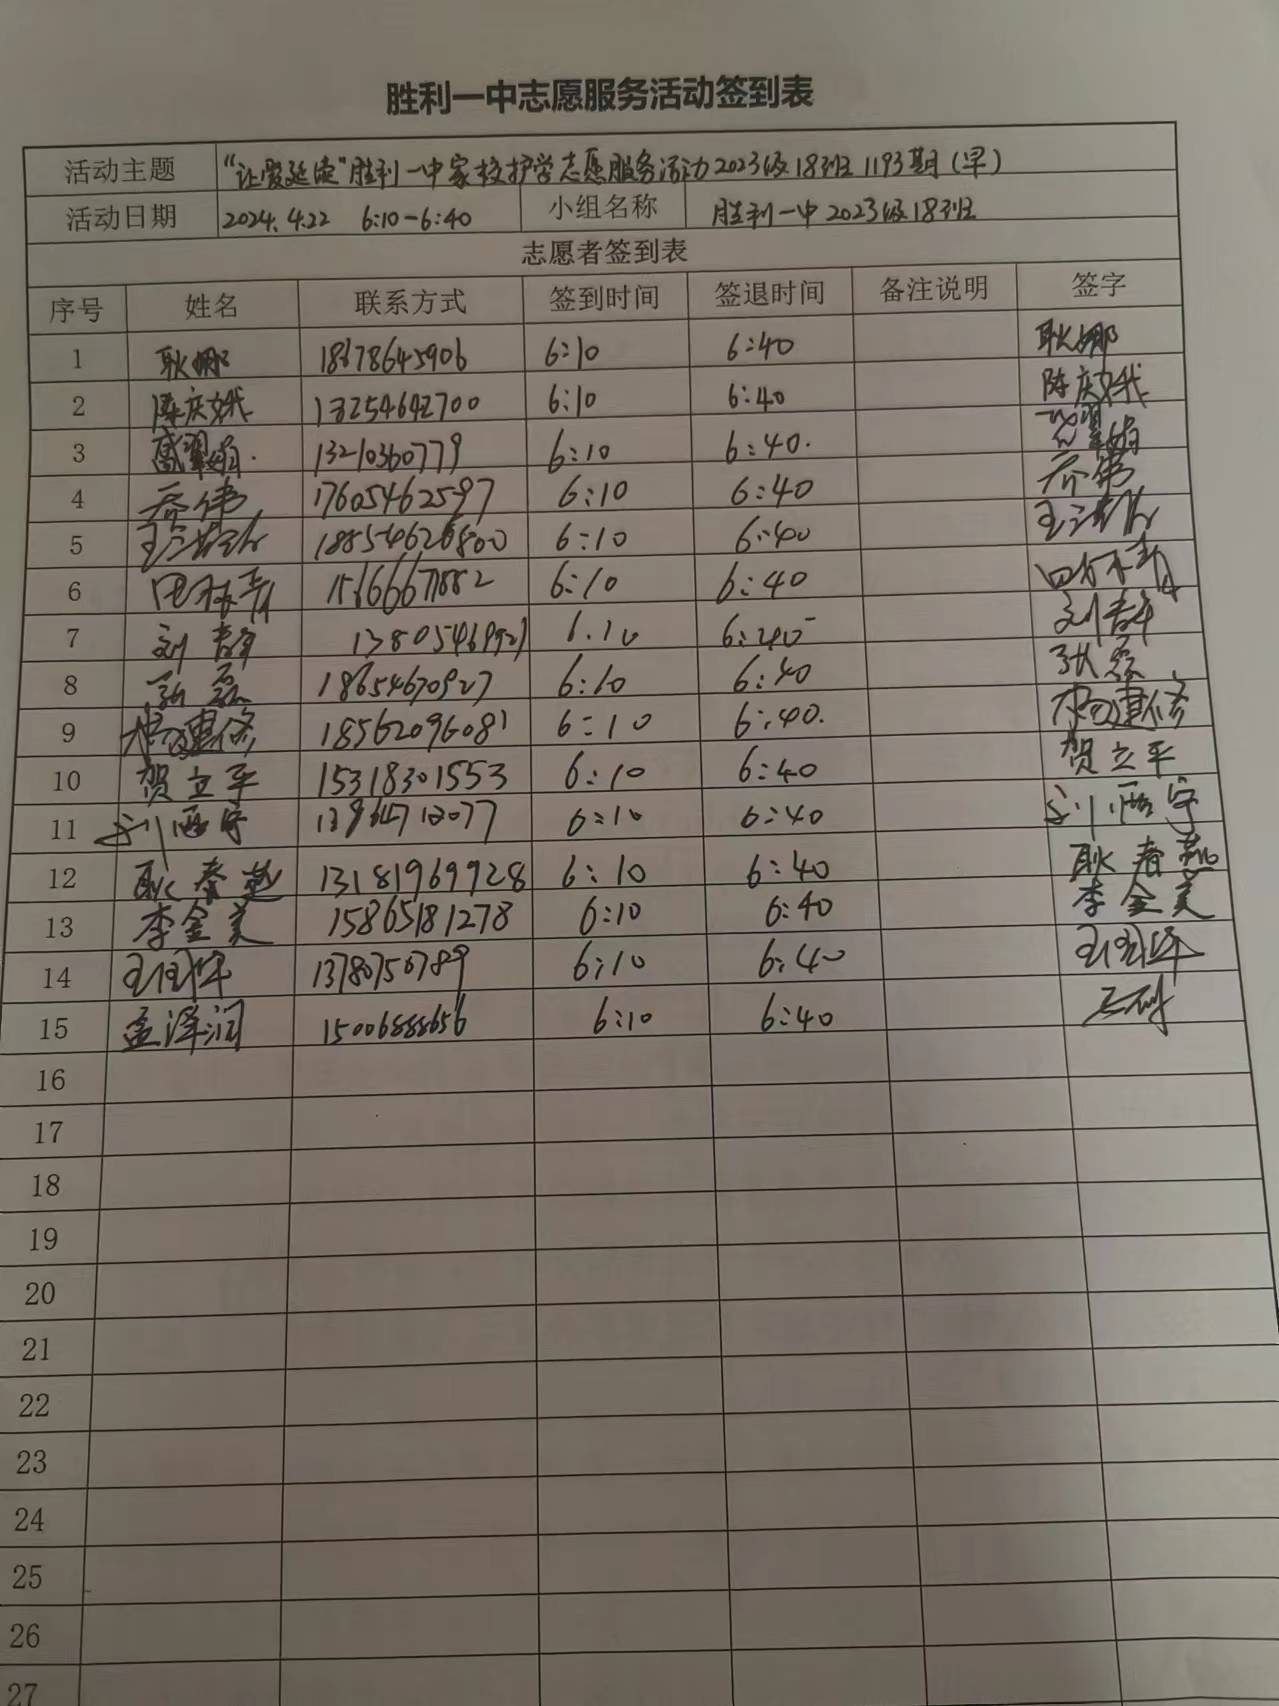 胜利一中志愿服务活动签到表
活动主题 “让爱延续”胜利一中家校护学志愿服务活动2023级18班 1193期(早)
活动日期 2024.4.22 6:10-6:40 小组名称 胜利一中2023级18班
志愿者签到表
序号 姓名 联系方式 签到时间 签退时间 备注说明 签字
1 耿娜 18678645906 6:10 6:40 耿娜
2 陈庆娥 13254642700 6:10 6:40 陈庆娥
3 13210360779 6:10 6:40.
4 乔伟 17605462597 6:10 6:40 乔伟
5 18854626800 6:10 6:40
6 15166671882 6:10 6:40
7 刘静 6:10 6:40 刘静
8 张磊 18654670927 6:10 6:40 张磊
9 杨建修 18562096081 6:10 6:40. 杨建修
10 贺立平 15318301553 6:10 6:40 贺立平
11 6:10 6:40
12 耿春燕 13181969928 6:10 6:40 耿春燕
13 李金美 15865181278 6:10 6:40 李金美
14 13780750789 6:10 6:40
15 孟泽润 15006888656 6:10 6:40
16
17
18
19
20
21
22
23
24
25
26
27